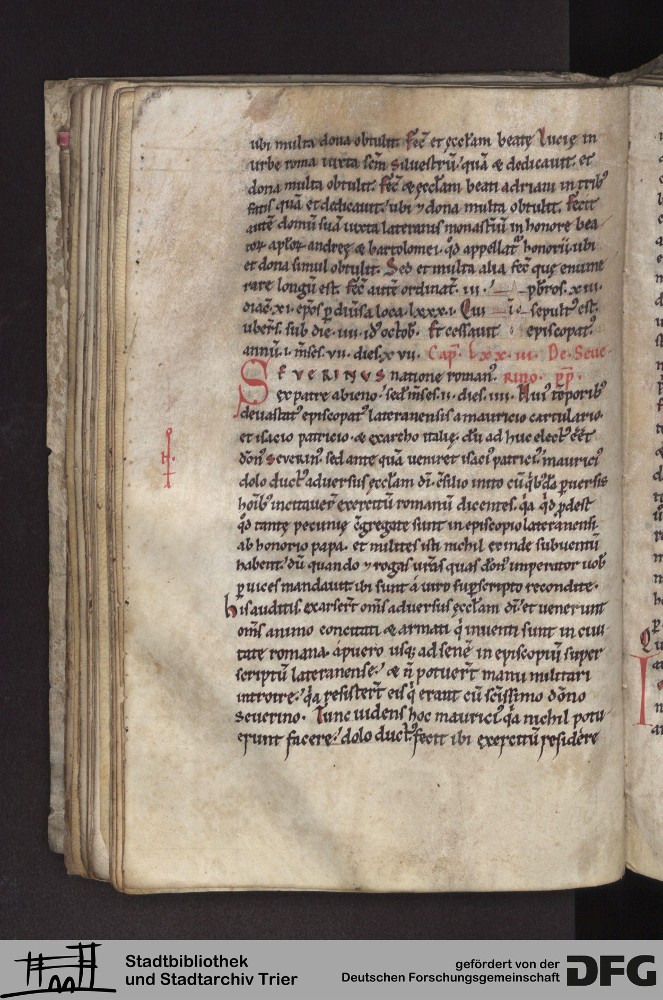 ubi multa dona obtulit. Fec̄ et ęccl̄am beatę Lucię in
urbe roma iuxta sc̄m siluestrū. quā & dedicauit. et
dona multa obtulit. Fec̄ & ęccl̄am beati adriani in trib᷒
fatis quā et dedicauit. ubi ⁊ dona multa obtulit. Fecit
autē domū suā iuxta lateranis monast̄iū in honore bea
toꝝ apl̄oꝝ andreę & bartolomei. qd̄ appellat᷒ honorii. ubi
et dona simul obtulit. Sed et multa alia fec̄ quę enume
rare longū est. fec̄ autē ordinat̄. iii. pb̄ros. xiii.
diac̄. xi. ep̄os ꝑ diūsa loca. lxxx.i. Qui sepult᷒ est.
sub die. iiii. id᷒ octob̄. Et cessauit episcopat᷒
annū. i. m̄ses. vii. dies. xvii. Cap̄. Lxx.iii. De Seue
SEVERINVS natione roman᷒. RINO. PP̄.
ex patre abieno. sed᷒ m̄ses. ii. dies. iiii. Hui᷒ tēporib᷒
deuastat᷒ episcopat᷒ lateranensis a mauricio cartulario.
et isacio patricio. & exarcho italię. dū ad huc elect᷒ eēt
dōn᷒ Severin᷒. sed ante quā veniret isaci᷒ patrici᷒. maurici᷒
dolo duct᷒ aduersus ęccl̄am dī. c̄silio inito cū qᵇdā ꝑuersis
hoīb᷒ incitauer̄ exercitū romanū dicentes. qa qd̄ ꝓdest
qd̄ tantę pecunię c̄gregate sunt in episcopio lateranensi
ab honorio papa. et milites isti nichil exinde subuentū
habent. dū quando ⁊ rogas vr̄as quas dōn᷒ imperator uob᷒
ꝑ uices mandauit ibi sunt á uiro sup̄scripto recondite.
his auditis. exarser̄t om̄s aduersus ęccl̄am dī. et uenerunt
om̄s animo concitati & armati q̇ inuenti sunt in ciui
tate romana. á puero usq; ad senē in episcopiū super
scriptū lateranense. & n̄ potuer̄t manu militari
introire. qa resister̄t eis q̇ erant cū sc̄issimo dōno
Severino. Tunc uidens hoc maurici᷒ qa nichil potu
erunt facere. dolo duct᷒ fecit ibi exercitū residere
Stadtbibliothek
und Stadtarchiv Trier
gefördert von der
Deutschen Forschungsgemeinschaft
DFG